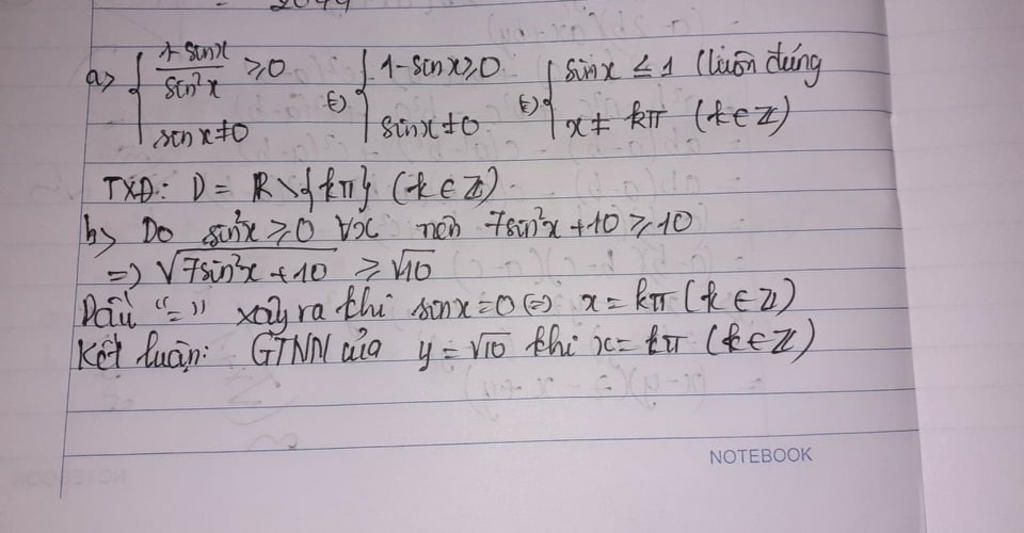 a> { (1-sinx)/(sin²x) ≥0 ; sinx≠0 (=) { 1-sinx≥0 ; sinx≠0 (=) { sinx ≤ 1 (luôn đúng ; x≠ kπ (k∈Z)
TXĐ: D = R\{kπ} (k∈Z).
b> Do sin²x ≥0 ∀x nên 7sin²x +10 ≥10
=> √(7sin²x +10) ≥ √10
Dấu "=" xảy ra khi sinx=0 (=) x=kπ (k∈Z)
Kết luận: GTNN của y=√10 khi x=kπ (k∈Z)
NOTEBOOK